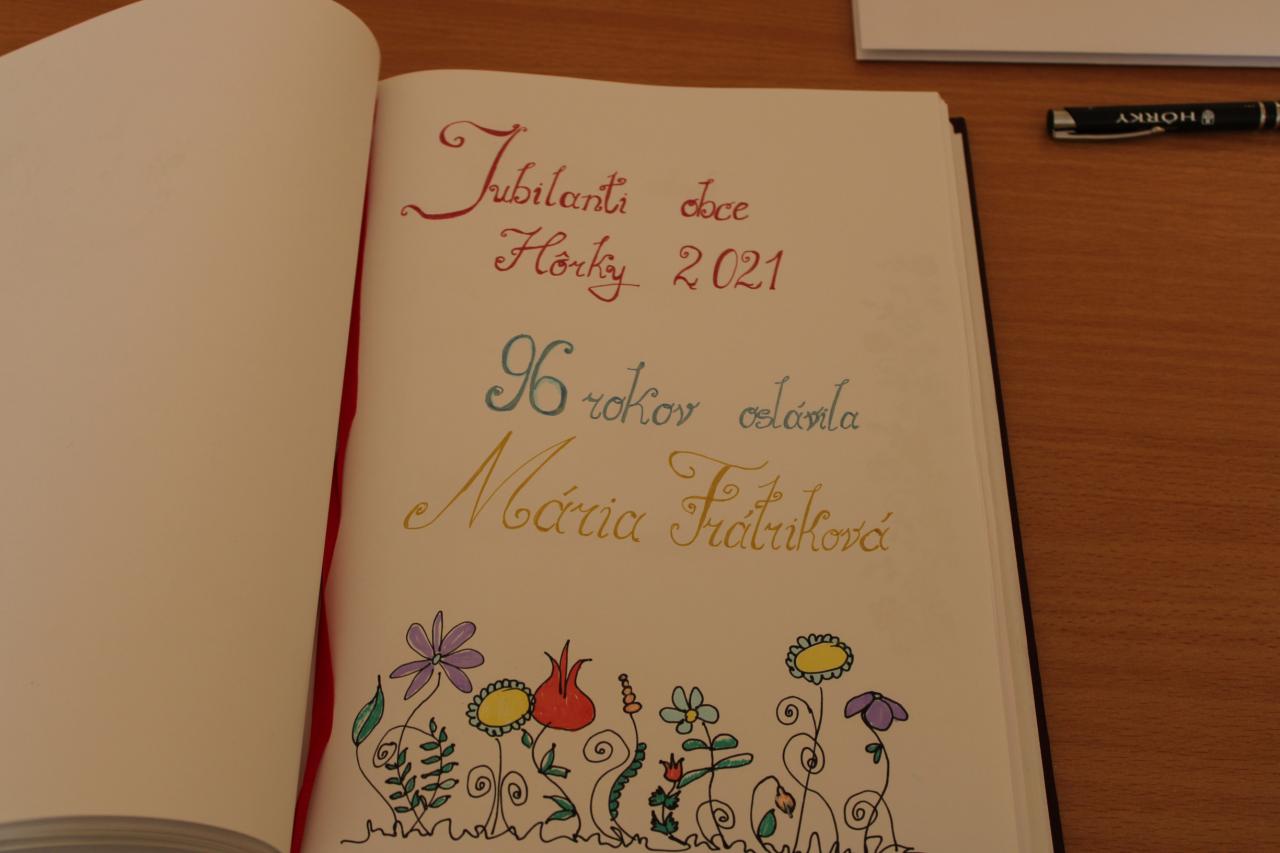 Jubilanti obce
Hôrky 2021
96 rokov oslávila
Mária Frátriková
HÔRKY